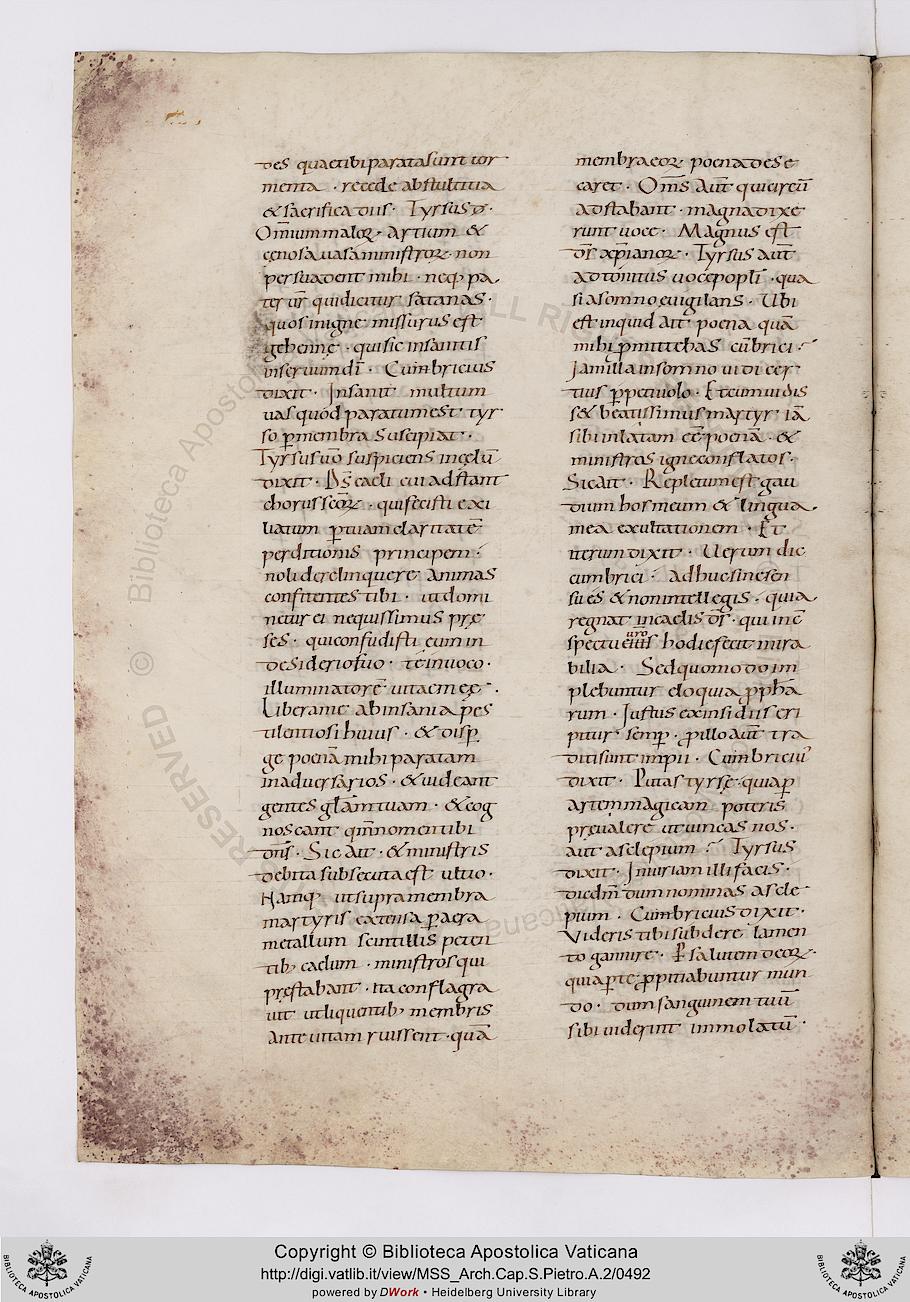 des quaetibiparatasunt tor
menta · recede abstultitia
& sacrifica diis · Tyrsus d̄ ·
Om̄ium maloꝝ artium &
exnosa uasaministroꝝ non
persuadent mihi · neq; pa
ter ūr quidicitur satanas ·
quos inigne missurus est
gehennę · quisic insanitis
inseruum dī · Cumbricius
dixit · Insanit multum
uas quod paratum est tyr
so ꝑmembra suscipiat ·
Tyrsus uō suspiciens incęlū
dixit · Dš caeli cui adstant
chorus scōꝝ · quifecisti exci
uatum ꝑtuam claritatē
perditionis principem ·
noli derelinquere animas
confitentes tibi · utdomi
netur ei nequissimus prę
ses · quiconfudisti eum in
desideriosuo · te inuoco ·
illuminatorē uitae meę ·
Liberame abinsania pes
tilentiosi huius · & disꝑ
ge poenā mihi paratam
inaduersarios · & uideant
gentes glām tuam · & cog
noscant qm̄ nomen tibi
dn̄s · Sic ait · & ministris
debita subsecuta est ultio ·
Namq; ut supra membra
martyris extensa ꝑ aera
metallum scintillis peten
tib; caelum · ministros qui
pręstabant · ita conflagra
uit ut liquentib; membris
ante uitam ruissent · quā
membra eoꝝ poena dese
caret · Om̄s aut̄ qui circū
adstabant · magna dixe
runt uoce · Magnus est
dš xp̄ianoꝝ · Tyrsus aut̄
adtonitus uoce popli · qua
si a somno euigilans · Ubi
est inquid ait poena quā
mihi ꝓmittebas cūbrici ·
Jamilla insomno uidi cer
tius ꝑpetiuolo · Et cum uidis
s& beatissimus martyr iā
sibi inlatam eē poenā · &
ministros igne conflatos ·
Sic ait · Repletum est gau
dium hos meum & lingua
mea exultationem · Et
iterum dixit · Uerum dic
cumbrici · adhuc sinesen
su es & nonintellegis · quia
regnat incaelis dš · qui inc̄
spectu eius
uro
hodie fecit mira
bilia · Sed quomodo im
plebuntur eloquia ꝓph̄a
rum · Justus exinsidiis eri
pitur semꝑ · ꝓillo aut̄ tra
diti sunt impii · Cumbriciu'
dixit · Putas tyrse · quia ꝑ
artem magicam poteris
pręualere ut uincas nos ·
aut asclepium · Tyrsus
dixit · Iniuriam illi facis ·
dicdm̄ dum nominas ascle
pium · Cumbricius dixit ·
Videris tibi subdere lamen
to gannire · P salutem deoꝝ ·
quia ꝑ te ꝓpitiabuntur mun
do · dum sanguinem tuū
sibi uiderint immolatū ·
Copyright © Biblioteca Apostolica Vaticana
http://digi.vatlib.it/view/MSS_Arch.Cap.S.Pietro.A.2/0492
powered by DWork • Heidelberg University Library